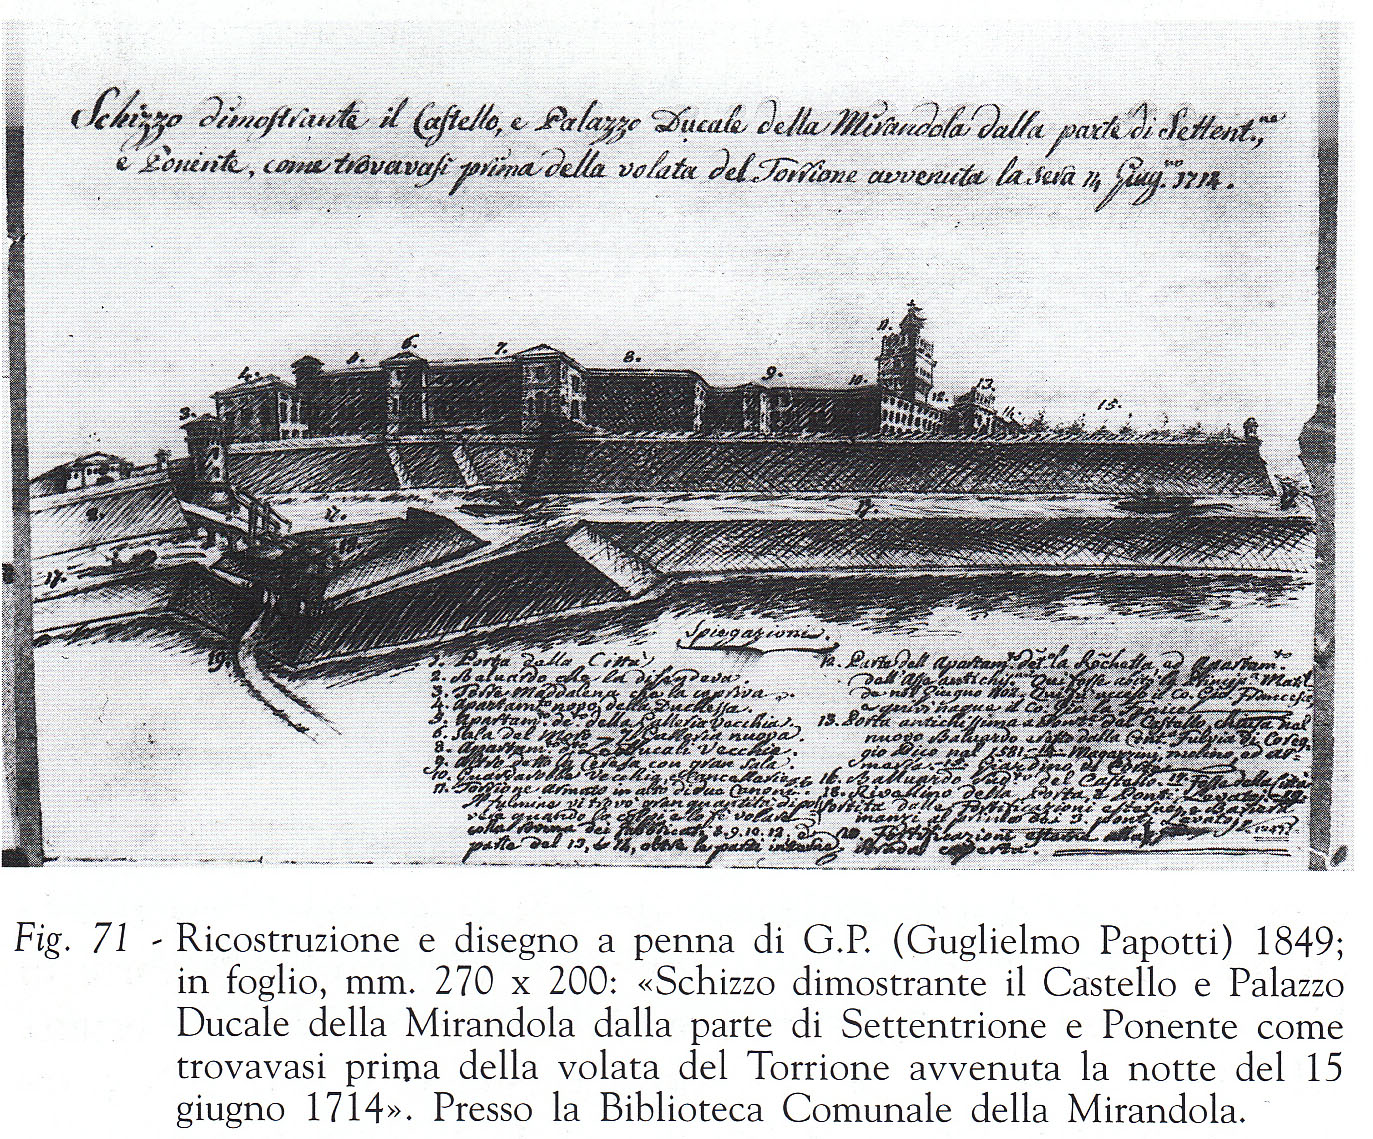 Schizzo dimostrante il Castello, e Palazzo Ducale della Mirandola dalla parte di Settent.ne,
e Ponente, come trovavasi prima della volata del Torrione avvenuta la sera 14 Giug.no 1714.
11.
6.
7.
8.
4.
9.
10.
12.
13.
3.
14.
15.
2.
17.
17.
19.
Spiegazioni.
1. Porta della Città
2. Baluardo che la difendeva.
3. Torre Maddalena che la copriva
4. Apartam.to nopo della Duchessa.
5. Apartam.to de.to della Galleria Vecchia
6. Sala del Moro 7. Galleria nuova
8. Apartam.to Ducali Vecchie
9. Altro detto la Ceresa con gran Sala
10. Guardarobbe Vecchia, e Cancelleria
11. Torrione armato in alto di due Cannoni.
Il fulmine vi trovò gran quantità di pol-
vere quando lo colpì e lo fè volare
colla rovina dei fabbricati 8.9.10.12. e
parte del 13. 14, oltre le parti interne
12. Parte dell'Apartam.to della Rochetta ad Apartam.to
13. Porta antichissima e Ponte del Castello, chiusa nal
nuovo Baluardo
nel 1581 14. Magazzini, mulino, ed ar-
meria 15. Giardino di Corte
16. Balluardo del Castello. 17. Fosse della Città
18. Rivellino della Porta, 2 Ponti Levatoj 19.
Sortita dalle Fortificazioni esterne
20. Fortificazione esterna alla
strada coperta.
Fig. 71 - Ricostruzione e disegno a penna di G.P. (Guglielmo Papotti) 1849;
in foglio, mm. 270 x 200: «Schizzo dimostrante il Castello e Palazzo
Ducale della Mirandola dalla parte di Settentrione e Ponente come
trovavasi prima della volata del Torrione avvenuta la notte del 15
giugno 1714». Presso la Biblioteca Comunale della Mirandola.